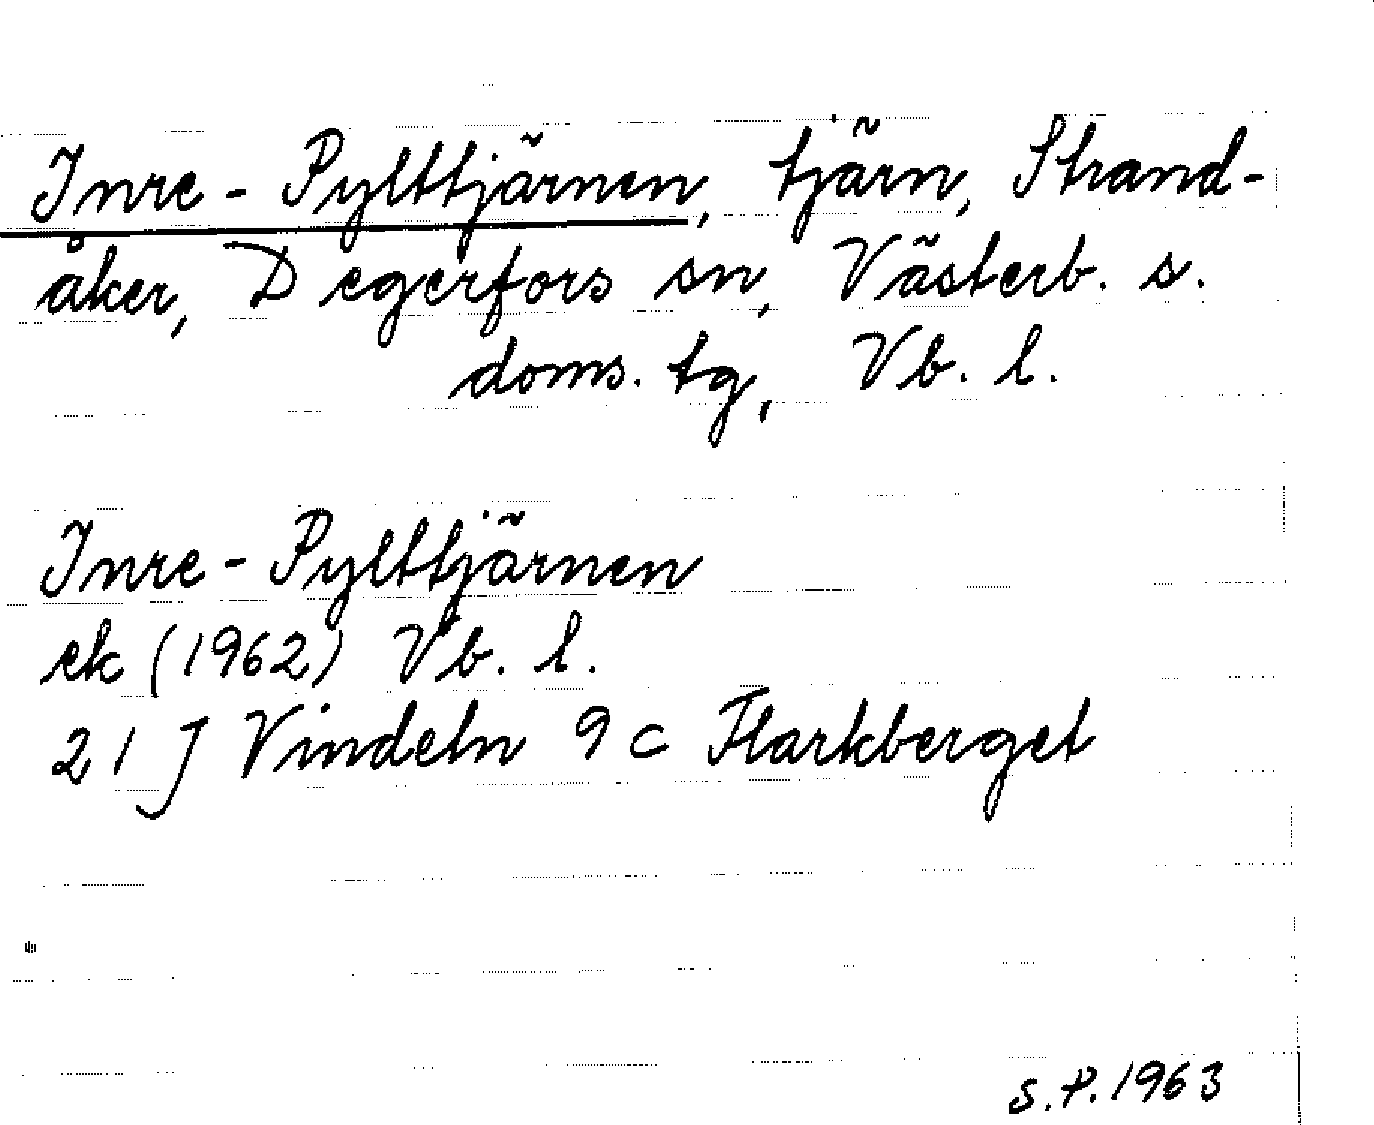 Inre-Pylttjärnen, tjärn, Strand-
åker, Degerfors sn, Västerb. s.
doms. tg, Vb. l.
Inre-Pylttjärnen
ek (1962) Vb. l.
21 J Vindeln 9 c Flarkberget
S.P. 1963